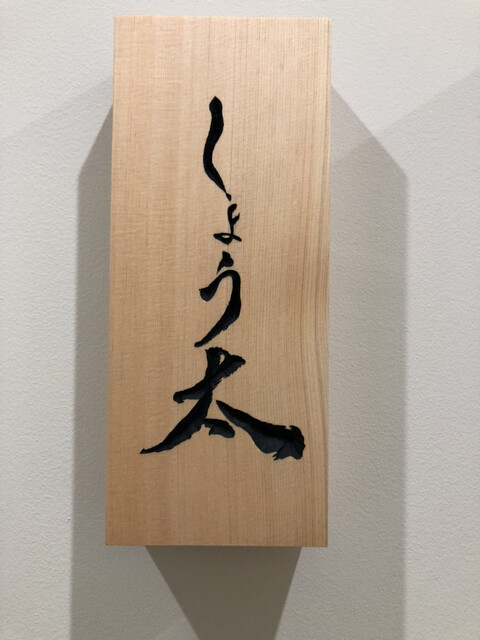 しょう太